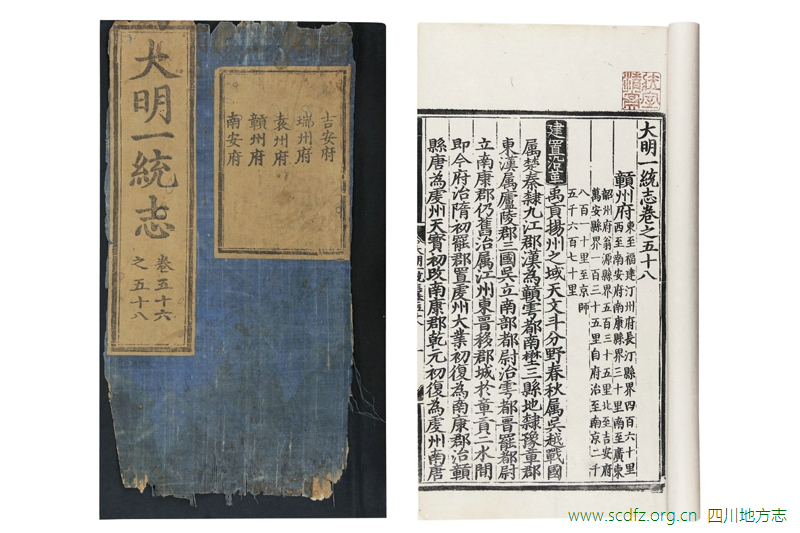 大明一統志
卷五十六
之五十八
吉安府
瑞州府
袁州府
贛州府
南安府
大明一統志卷之五十八
贛州府
東至福建汀州府長汀縣界四百六十里
西至南安府南康縣界三十里南至廣東
韶州府翁源縣界五百三十五里北至吉安府
萬安縣界一百三十五里自府治至南京二千
八百一十里至京師
五千六百七十里
建置沿革 禹貢揚州之域天文斗分野春秋属吳越戰國
属楚秦隸九江郡漢為贛雩都南壄三縣地隸豫章郡
東漢属廬陵郡三國吳立南部都尉治雩都晉罷都尉
立南康郡仍舊治属江州東晉移郡城於章貢二水間
即今府治隋初罷郡置虔州大業初復為南康郡治贛
縣唐為虔州天寶初改南康郡乾元初復為虔州南唐
www.scdfz.org.cn 四川地方志